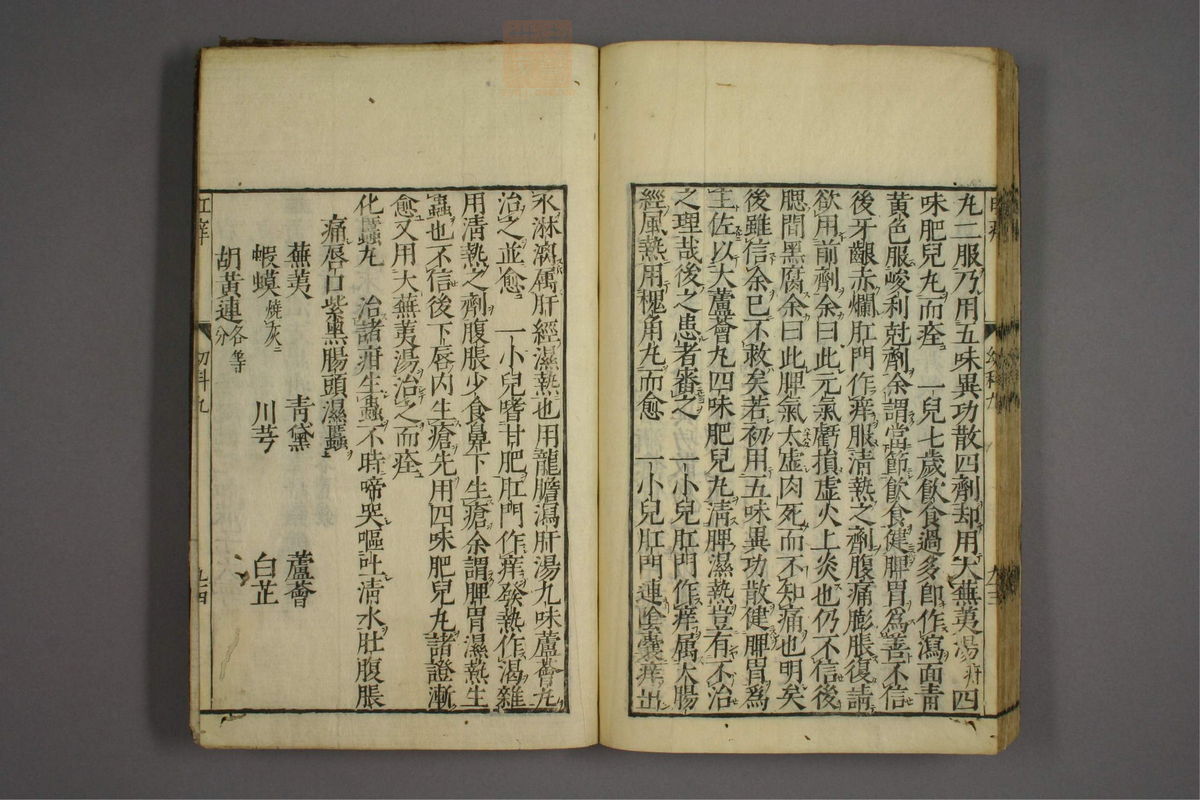 丸二服乃用五味異功散四劑却用大蕪荑湯 四
味肥兒丸而痊 一兒七歲飲食過多即作瀉面青
黃色服峻利尅劑余謂當節飲食健脾胃爲善不信
後牙齦赤爛肛門作痒服清熱之劑腹痛膨脹復請
欲用前劑余曰此元氣虧損虛火上炎也仍不信後
腮間黑腐余曰此脾氣太虛肉死而不知痛也明矣
後雖信余已不救矣若初用五味異功散健脾胃爲
主佐以大蘆薈丸四味肥兒丸清脾濕熱豈有不治
之理哉後之患者審之 一小兒肛門作痒属大腸
經風熱用槐角丸而愈 一小兒肛門連陰囊痒出
水淋漓属肝經濕熱也用龍膽瀉肝湯九味蘆薈丸
治之並愈 一小兒嗜甘肥肛門作痒發熱作渴雜
用清熱之劑腹脹少食鼻下生瘡余謂脾胃濕熱生
蟲也不信後下唇内生瘡先用四味肥兒丸諸證漸
愈又用大蕪荑湯治之而痊
化䘌丸 治諸疳生䘌不時啼哭嘔吐清水肚腹脹
痛唇口紫黑腸頭濕䘌
蕪荑 青黛 蘆薈
蝦蟆燒灰 川芎 白芷
胡黃連各等分
幼科九
九十四